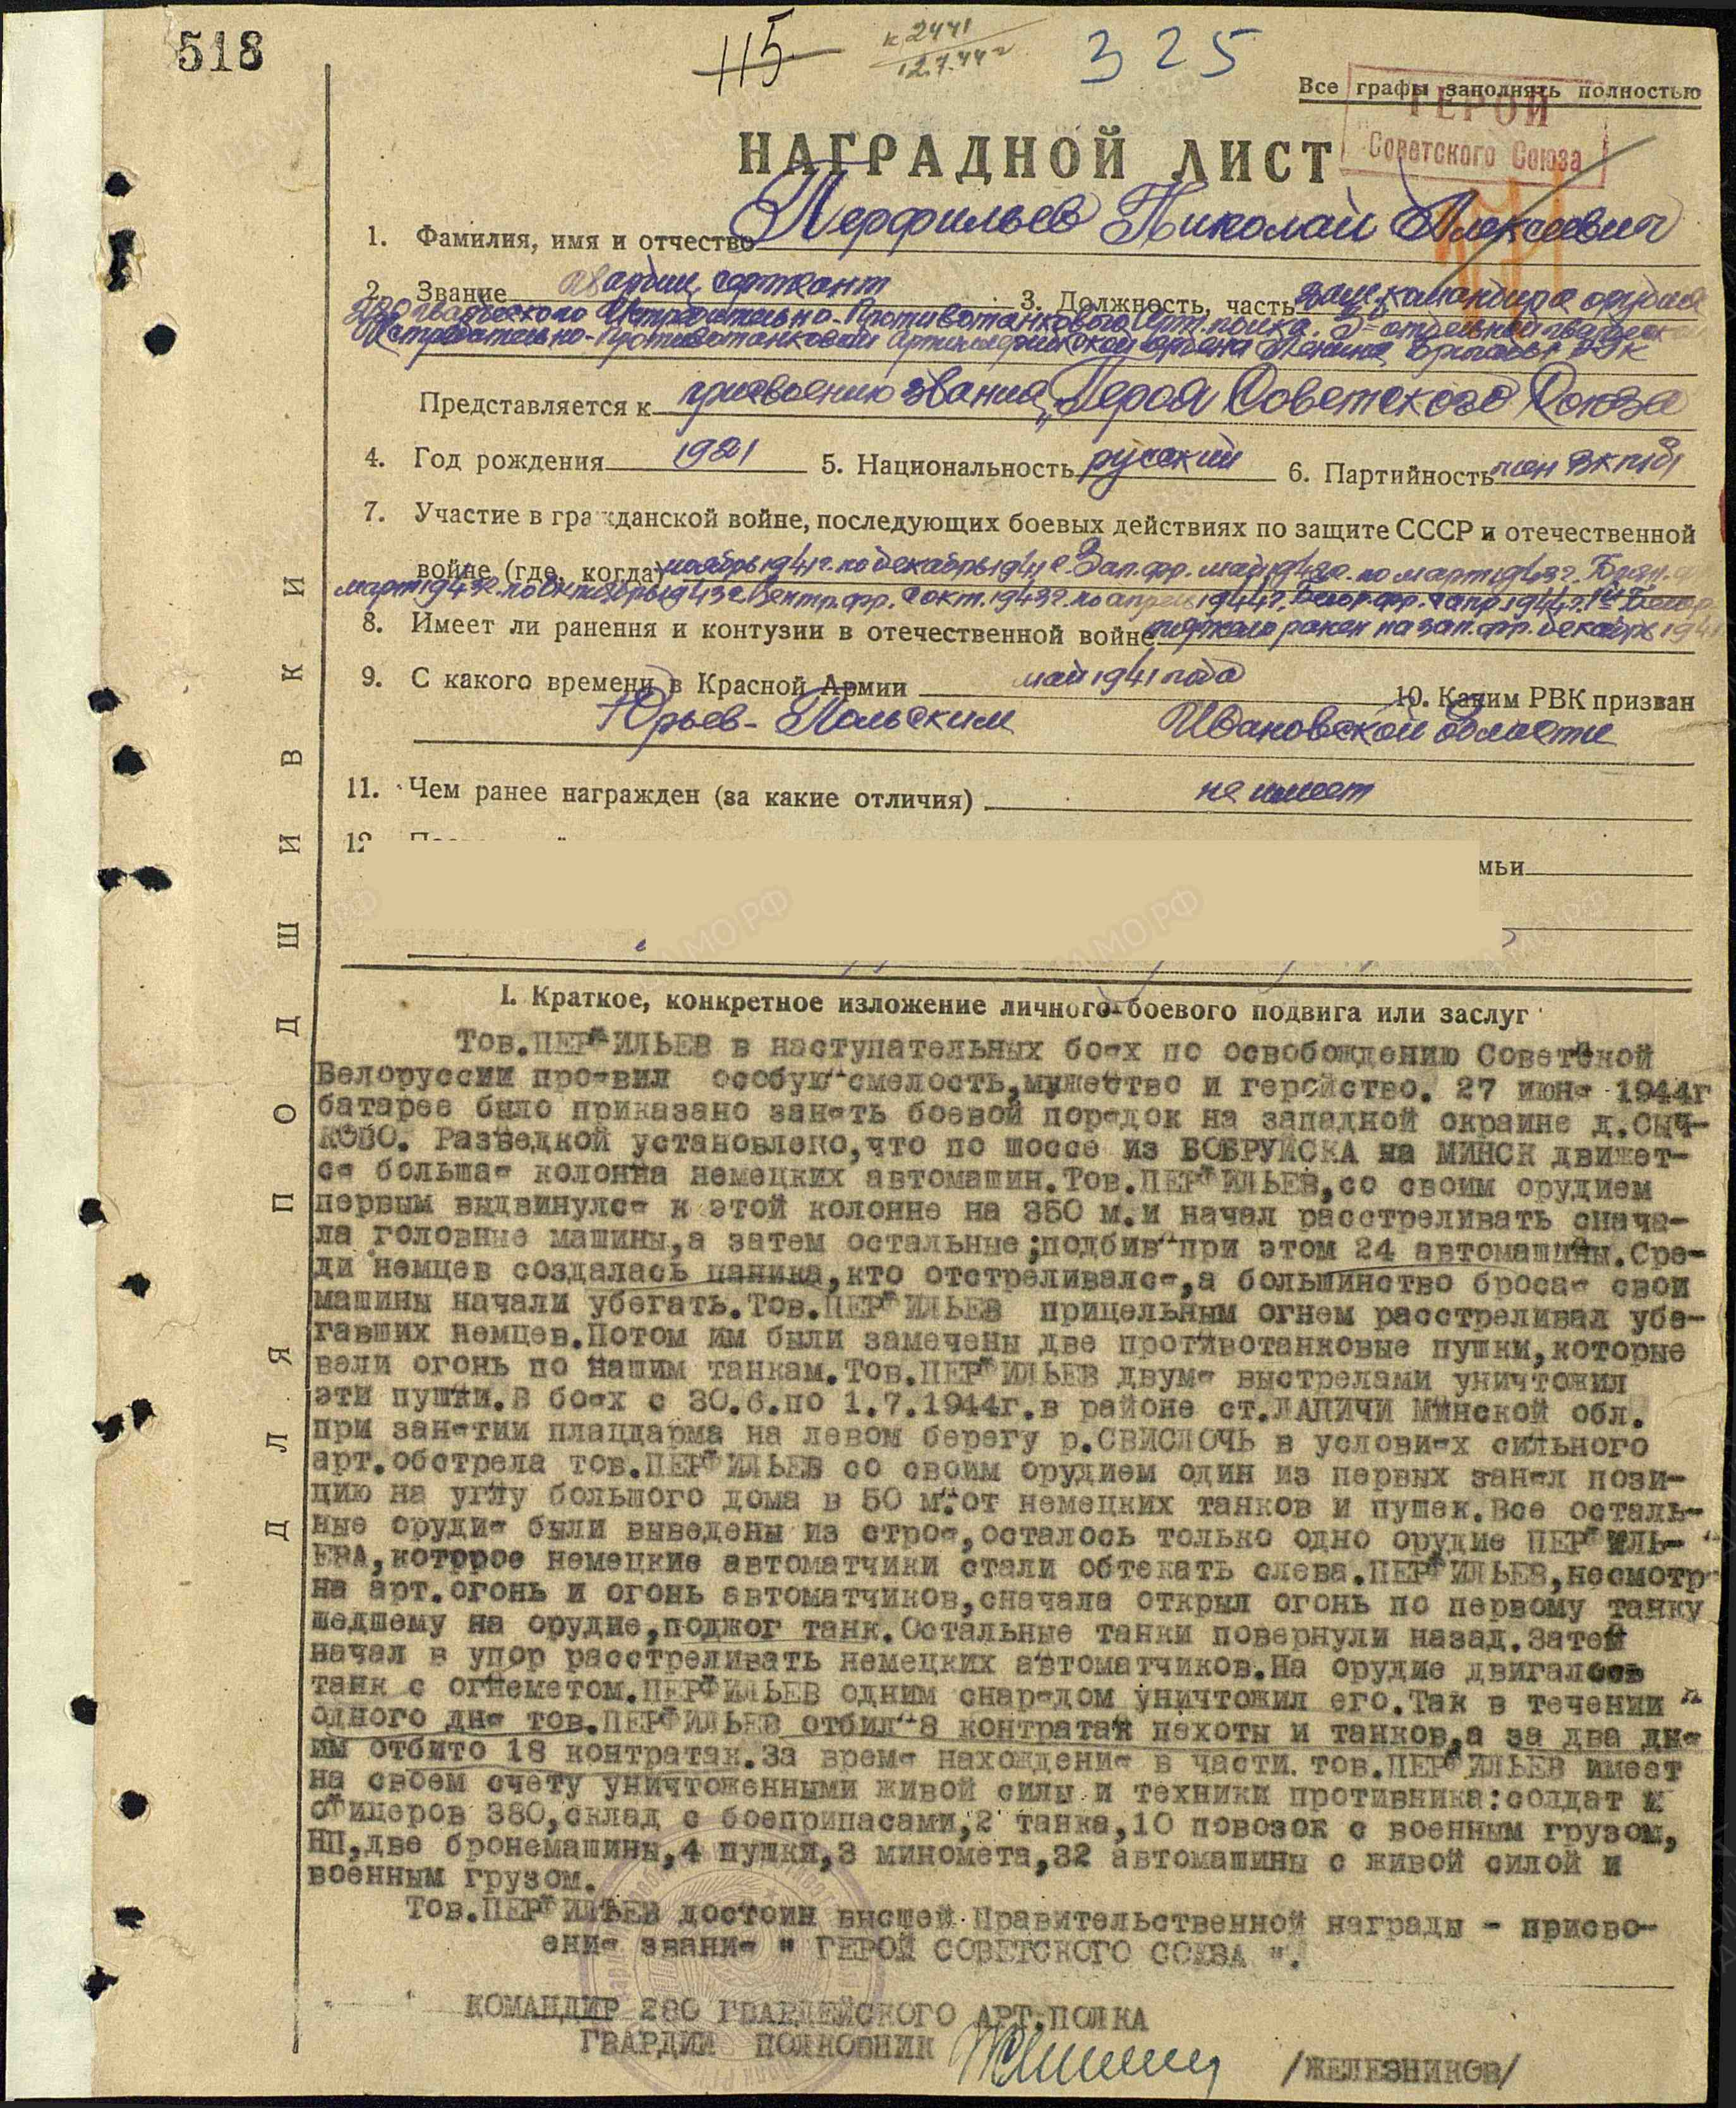 518
115
к 2441
12.7.44 г
325
Все графы заполнять полностью
ГЕРОЙ
Советского Союза
НАГРАДНОЙ ЛИСТ
1. Фамилия, имя и отчество Перфильев Николай Алексеевич
2. Звание гвардии сержант 3. Должность, часть зам. командира орудия
280 гвардейского Истребительно-Противотанкового Арт. полка. 3й отдельной гвардейской
Истребительно-Противотанковой Артиллерийской ордена Ленина Бригады РГК
Представляется к присвоению звания „Героя Советского Союза
4. Год рождения 1921 5. Национальность русский 6. Партийность член ВКП(б)
7. Участие в гражданской войне, последующих боевых действиях по защите СССР и отечественной
войне (где, когда) ноябрь 1941г. по декабрь 1941г. Зап. фр. май 1942г. по март 1943г. Брян. фр
март 1943г. по Октябрь 1943г. Центр. фр. с окт. 1943г. по апрель 1944г. Белор. фр. с апр. 1944г. 1й Белор.
8. Имеет ли ранения и контузии в отечественной войне тяжело ранен на зап. фр. декабрь 1941
9. С какого времени в Красной Армии май 1941 года 10. Каким РВК призван
Юрьев-Польским Ивановской области
11. Чем ранее награжден (за какие отличия) не имеет
12
мьи
I. Краткое, конкретное изложение личного боевого подвига или заслуг
Тов.ПЕРФИЛЬЕВ в наступательных боях по освобождению Советской
Белоруссии проявил особую смелость,мужество и геройство. 27 июня 1944г
батарее было приказано занять боевой порядок на западной окраине д.СЫЧ-
КОВО. Разведкой установлено,что по шоссе из БОБРУЙСКА на МИНСК движет-
ся большая колонна немецких автомашин.Тов.ПЕРФИЛЬЕВ,со своим орудием
первым выдвинулся к этой колонне на 350 м.и начал расстреливать снача-
ла головные машины,а затем остальные;подбив при этом 24 автомашины.Сре-
ди немцев создалась паника,кто отстреливался,а большинство бросая свои
машины начали убегать.Тов.ПЕРФИЛЬЕВ прицельным огнем расстреливал убе-
гавших немцев.Потом им были замечены две противотанковые пушки,которые
вели огонь по нашим танкам.Тов.ПЕРФИЛЬЕВ двумя выстрелами уничтожил
эти пушки.В боях с 30.6.по 1.7.1944г.в районе ст.ЛАПИЧИ Минской обл.
при занятии плацдарма на левом берегу р.СВИСЛОЧЬ в условиях сильного
арт.обстрела тов.ПЕРФИЛЬЕВ со своим орудием один из первых занял пози-
цию на углу большого дома в 50 м.от немецких танков и пушек.Все осталь-
ные орудия были выведены из строя,осталось только одно орудие ПЕРФИЛЬ-
ЕВА,которое немецкие автоматчики стали обтекать слева.ПЕРФИЛЬЕВ,несмотря
на арт.огонь и огонь автоматчиков,сначала открыл огонь по первому танку
шедшему на орудие,поджог танк.Остальные танки повернули назад.Затем
начал в упор расстреливать немецких автоматчиков.На орудие двигалось
танк с огнеметом.ПЕРФИЛЬЕВ одним снарядом уничтожил его.Так в течении
одного дня тов.ПЕРФИЛЬЕВ отбил 8 контратак пехоты и танков,а за два дня
им отбито 18 контратак.За время нахождения в части тов.ПЕРФИЛЬЕВ имеет
на своем счету уничтоженными живой силы и техники противника:солдат и
офицеров 380,склад с боеприпасами,2 танка,10 повозок с военным грузом,
НП,две бронемашины,4 пушки,3 миномета,32 автомашины с живой силой и
военным грузом.
Тов.ПЕРФИЛЬЕВ достоин высшей Правительственной награды - присво-
ения звания " ГЕРОЙ СОВЕТСКОГО СОЮЗА ".
КОМАНДИР 280 ГВАРДЕЙСКОГО АРТ.ПОЛКА
ГВАРДИИ ПОЛКОВНИК /ЖЕЛЕЗНИКОВ/
ДЛЯ ПОДШИВКИ
ЦАМО РФ